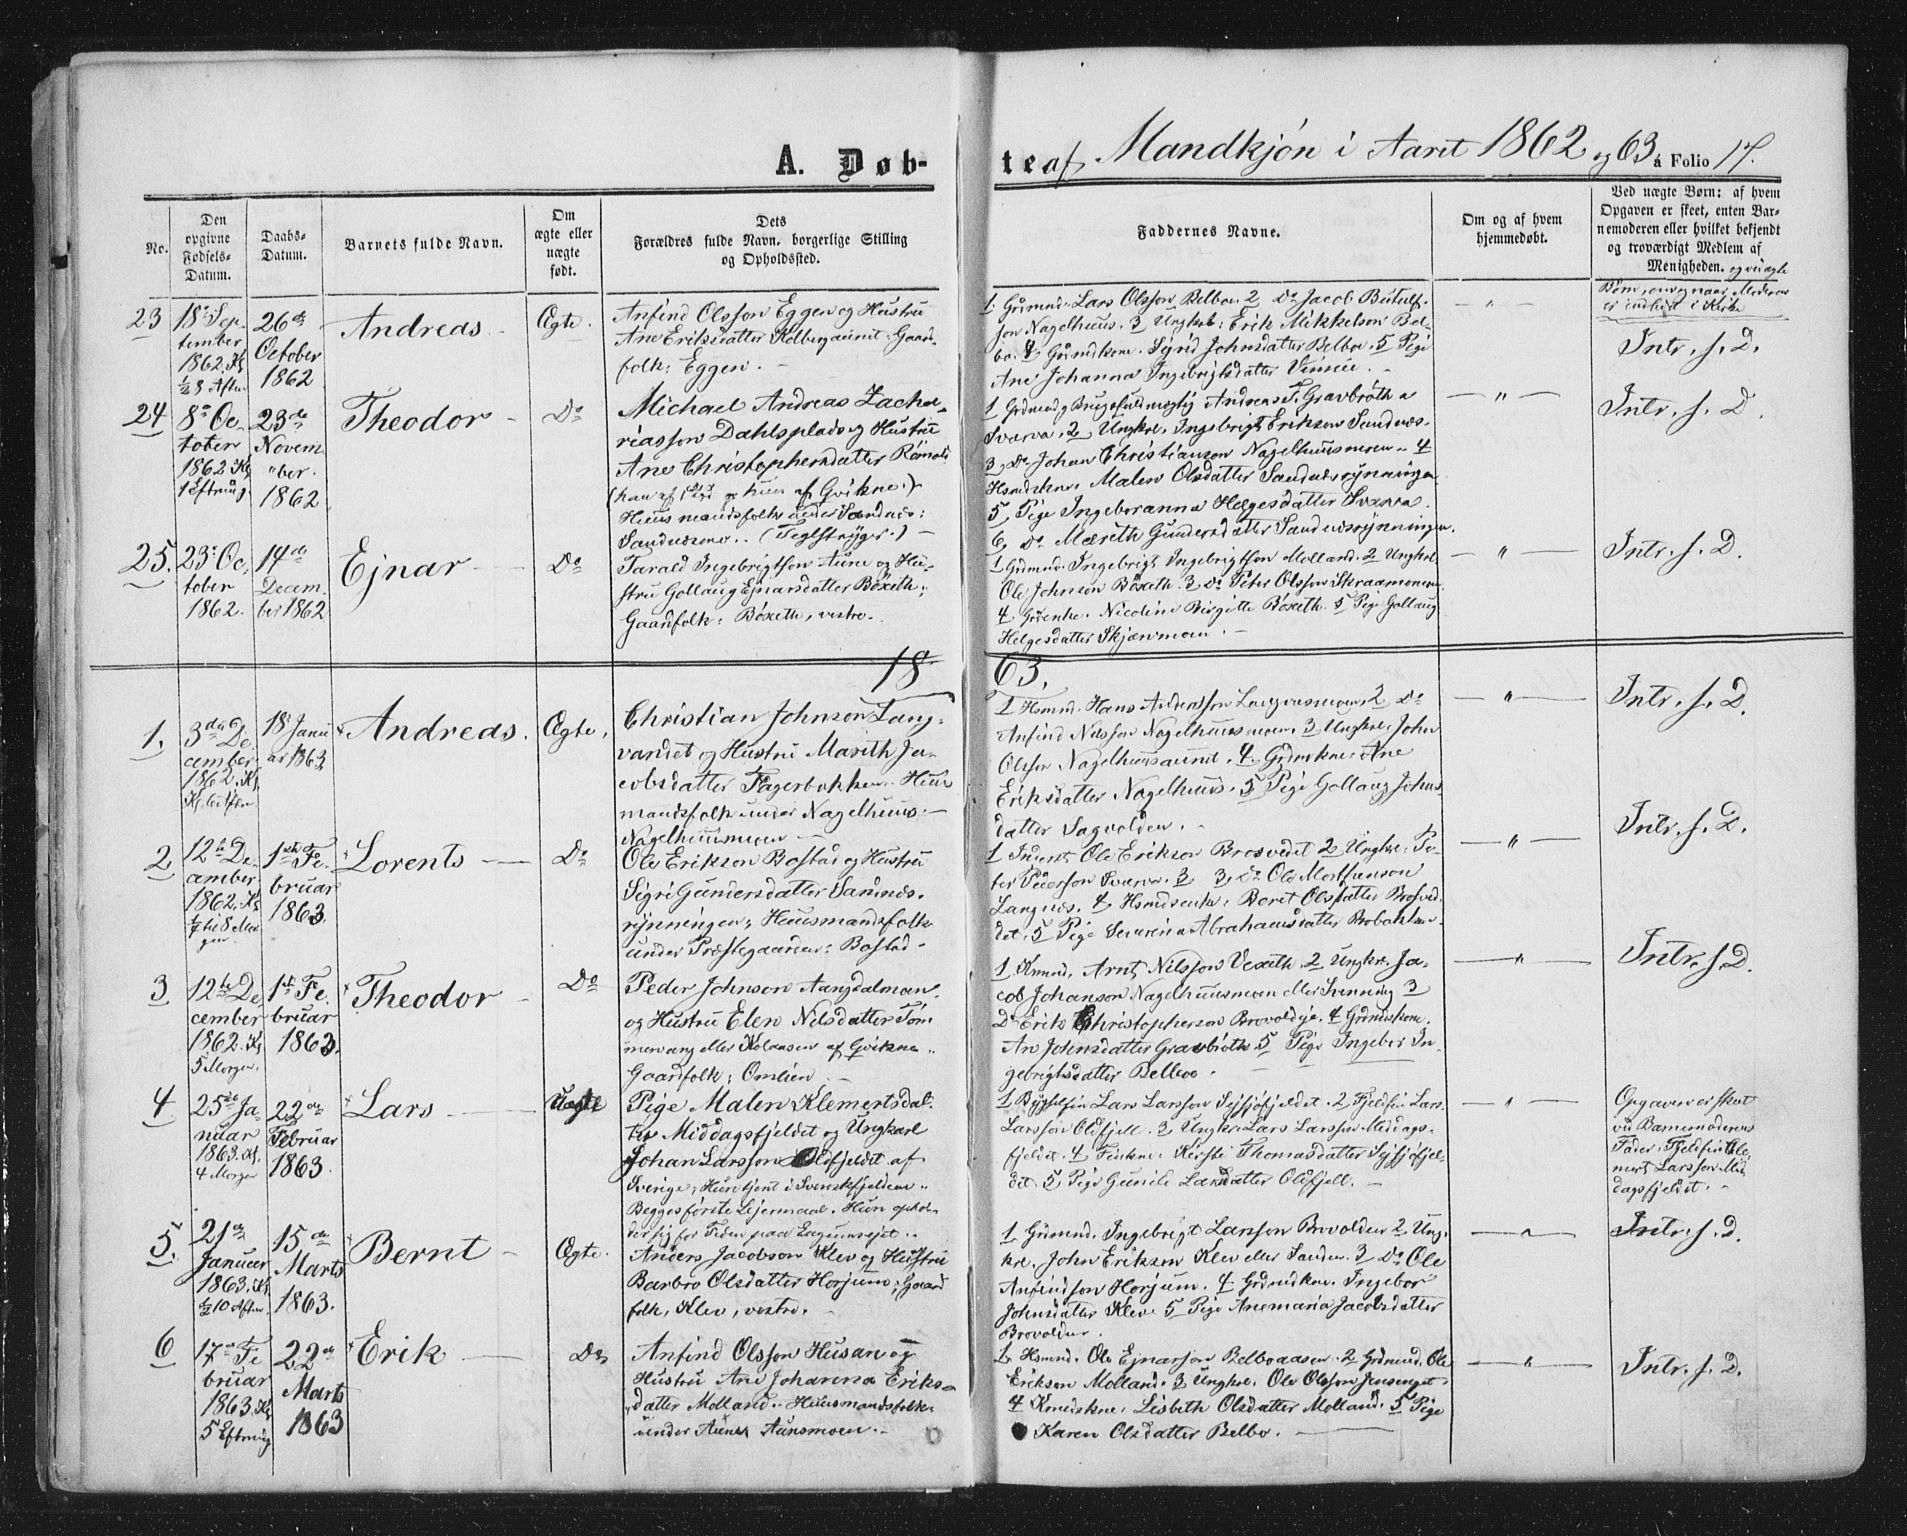 A. Døb-
te af Mandkjön i Aaret 1862 og 63 à Folio 17.
No.
Den opgivne Fødsels-Datum.
Daabs-Datum.
Barnets fulde Navn.
Om ægte eller uægte født.
Dets Forældres fulde Navn, borgerlige Stilling og Opholdsted.
Faddernes Navne.
Om og af hvem hjemmedøbt.
Ved uægte Børn: af hvem
Opgaven er skeet, enten Bar-
nemoderen eller hvilket bekjendt
og troværdigt Medlem af
Menigheden. og ved ægte
Børn, om og naar Moderen
er indledet i Kirke
23
18de Sep-
tember
1862. Kl.
½ 8 Aften
26de
October
1862
Andreas
Ægte.
Anfind Olsson Eggen og Hustru
Ane Eriksdatter Kolbergaunet. Gaard-
folk: Eggen.
1. Grdmnd. Lars Olsson Belbo. 2 Do Jacob Botulf-
son Nagelhuus. 3 Ungkrl: Erik Mikkelson Bel-
bo. 4 Grdmdkone. Sigrid Johnsdatter Belbo. 5 Pige
Ane Johanna Ingebrigtsdatter
Intr. s. D.
24
8de Oc-
tober
1862 Kl.
1 Eftmdg.
23de
Novem-
ber.
1862
Theodor
Do
Michael Andreas Zacha-
riasson Dahlsplads og Hustru
Ane Christophersdatter
(han af og hun af Qvikne.)
Huusmandsfolk under Sandnes:
(Teglstryger.)
1 Grdmnd og Brugsfuldmægtig Andreas T. Gravbröth
Sværva. 2 Ungkrl. Ingebrigt Erikson Sandnes.
3 Do Johan Christianson Nagelhuusmoen. 4
Hsmdskne. Malen Olsdatter Sandnesrynningen
5 Pige Ingeboranna Helgesdatter Sværva.
6 Do Mareth Gundersdatter Sandnesrynningen.
Intr. s. D.
25.
23de Oc-
tober
1862.
14de
Decem-
ber 1862
Ejnar
Do
Tarald Ingebrigtson Aune og Hu-
stru Gollaug Ejnarsdatter Böxeth:
Gaardfolk: Böxeth, vestre.
1 Grdmnd. Ingebrigt Ingebrigtson Molland. 2 Ungkrl
Ole Johnson Böxeth. 3 Do Peter Olsson Skraamoen
4 Grdenke. Nicoline Birgitte Böxeth. 5 Pige Gollaug
Helgesdatter Skjærmoen.
Intr. s. D.
1863.
1.
3de De-
cember
1862. Kl.
Kl. 6 Aften
18de Janu-
ar 1863
Andreas.
Ægte.
Christian Johnson Lang-
vandet og Hustru Marith Ja-
cobsdatter Fagerbakken. Huus-
mandsfolk under Nagelhuus.
Nagelhuusmoen
1 Hsmnd. Hans Langvasmoen 2 Do
Anfind Nilsson Nagelhuusmoen. 3 Ungkrl. John
Olsson Nagelhuusaunet. 4 Grdmdkne: Ane
Eriksdatter Nagelhuus. 5 Pige Gollaug Johns
datter Sagvolden.
Intr. s. D.
2
12te De-
cember
1862. Kl.
½ til 8 Mor-
gen.
1ste Fe-
bruar
1863.
Lorents
Do
Ole Erikson Bostad og Hustru
Sigri Gundersdatter Sannes-
rynningen: Huusmandsfolk
under Præstegaarden: Bostad.
1 Inderst Ole Erikson Brosvedet 2 Ungkrl. Pe-
ter Pederson Sværva. 3 3 Do Ole Morthenson
Langnes. 4 Hsmdsenke: Beret Olsdatter Brosved
det. 5 Pige Severina Abrahamsdatter Brobakken
Intr. s. D.
3
12te De
cember
1862. Kl
5 Morgen.
1ste Fe-
bruar
1863.
Theodor
Do
Peder Johnson Aangdalman
og Hustru Elen Nilsdatter Töm
mervang eller Kolaasen af Qvikne.
Gaardfolk: Omlien
1 Kmnd. Arnt Nilsson Vexeth. 2 Ungkrl. Ja-
cob Johanson Nagelhuusmoen eller Svenning 3
Do Erik Christopherson Brovoldye. 4 Grdmdskone.
An Johnsdatter Gravbröth. 5 Pige Ingebor In-
gebrigtsdatter Belboe.
Intr. s. D.
4
25de Ja-
nuar
1863. Kl.
4 Morgen
22de
Februar
1863.
Lars
Uægte
Pige Malen Klemetsdat-
ter Middagsfjeldet og Ungkarl
Johan Larsson Oldfjeldet af
Sverige. Hun tjent i Svenskfjeldene.
Begges förste Leiermaal. Hun ophol-
der sig for Tiden paa
1 Bygselfin Lars Larsson Sejsjöfjeldet. 2 Fjeldfin Lars
Larsson Oldfjell. 3 Ungkr Lars Larsson Middags-
fjeldet. 4 Finkne. Kirsti Thomasdatter Sejsjöfjel-
det. 5 Pige Gunild Larsdatter Oldfjell.
Opgaven er skeet
ved Barnemoderens
Fader, Fjeldfin Kle-
met Larsson Mid
dagsfjeldet.
5.
21de
Januar
1863. Kl.
½ 10 Aften
15de
Marts
1863.
Bernt
Ægte.
Anders Jacobson Klev og Hustru
Barbro Olsdatter Horjum; Gaard
folk, Klev, vestre.
1 Grdmnd. Ingebrigt Larsson Brovolden 2 Ung-
kr. John Erikson Klev eller Sanden. 3 Do Ole
Anfindson Horjum. 4 Grdmdkne. Ingebor
Johnsdatter Klev. 5 Pige Anemaria Jacobsdatter
Brovolden.
Intr. s. D.
6
17de Fe
bruar
1863. Kl
5 Eftmdg
22de
Marts
1863
Erik
Do
Anfind Olsson Husan og
Hustru Ane Johanna Eriks-
datter Molland. Huusmandsfolk
under Aune: Aunsmoen.
1. Hsmnd. Ole Ejnarson Belboaasen. 2 Grdmnd. Ole
Erikson Molland. 3 Ungkr. Ole Olsson
4 Kmdskne. Lisbeth Olsdatter Molland. 5 Pige
Karen Olsdatter Belbo.
Intr. s. D.